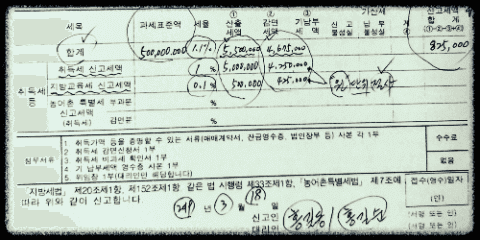 ① ② ③ 가산세 신고세액
세목 과세표준액 세율 산출세액 감면세액 기납부세액 신고불성실 납부불성실 계④ 합계 (①-②-③+④)
합계 500,000,000 1.1% 5,500,000 4,675,000 825,000
취득세 신고세액 1 % 5,000,000 4,250,000
취득세 등 지방교육세 신고세액 0.1 % 500,000 425,000
농어촌 특별세 부과분 %
신고세액 (취득세) 감면분 %
첨부서류
1 취득가액 등을 증명할 수 있는 서류(매매계약서, 잔금영수증, 법인장부 등) 사본 각 1부
2 취득세 감면신청서 1부
3 취득세 비과세 확인서 1부
4 기 납부세액 영수증 사본 1부
5 위임장 1부(대리인만 해당합니다)
수수료
없음
「지방세법」 제20조제1항, 제152조제1항, 같은 법 시행령 제33조제1항, 「농어촌특별세법」 제7조에
따라 위와 같이 신고합니다.
접수(영수)일자
(인)
년 3 월 18 일
신고인 홍길동 / 홍길동 (서명 또는 인)
대리인 (서명 또는 인)